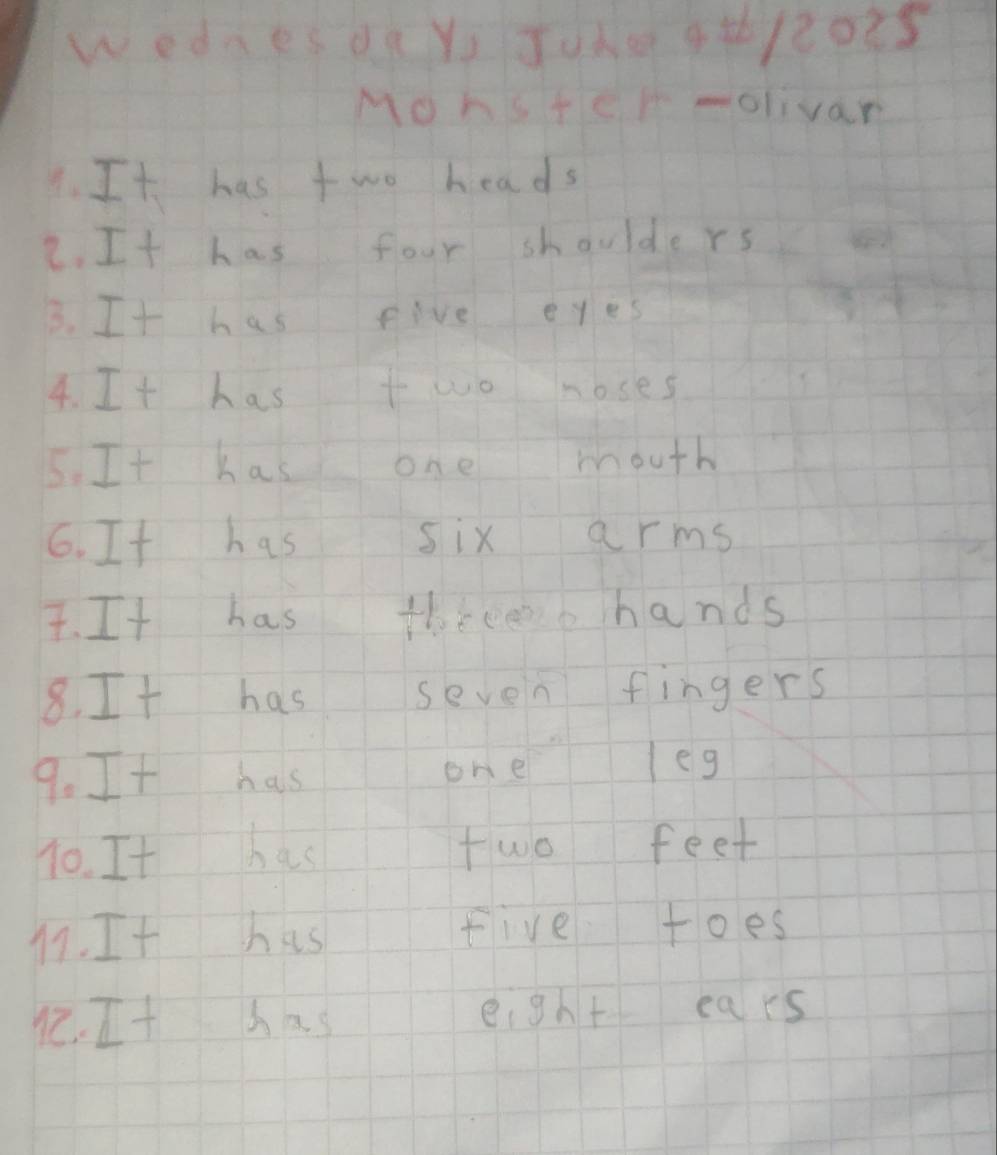 Wednesday, June 4th/2025
Monster - olivar
1. It has two heads
2. It has four shoulders
3. It has five eyes
4. It has two noses
5. It has one mouth
6. It has six arms
7. It has three hands
8. It has seven fingers
9. It has one leg
10. It has two feet
11. It has five toes
12. It has eight ears